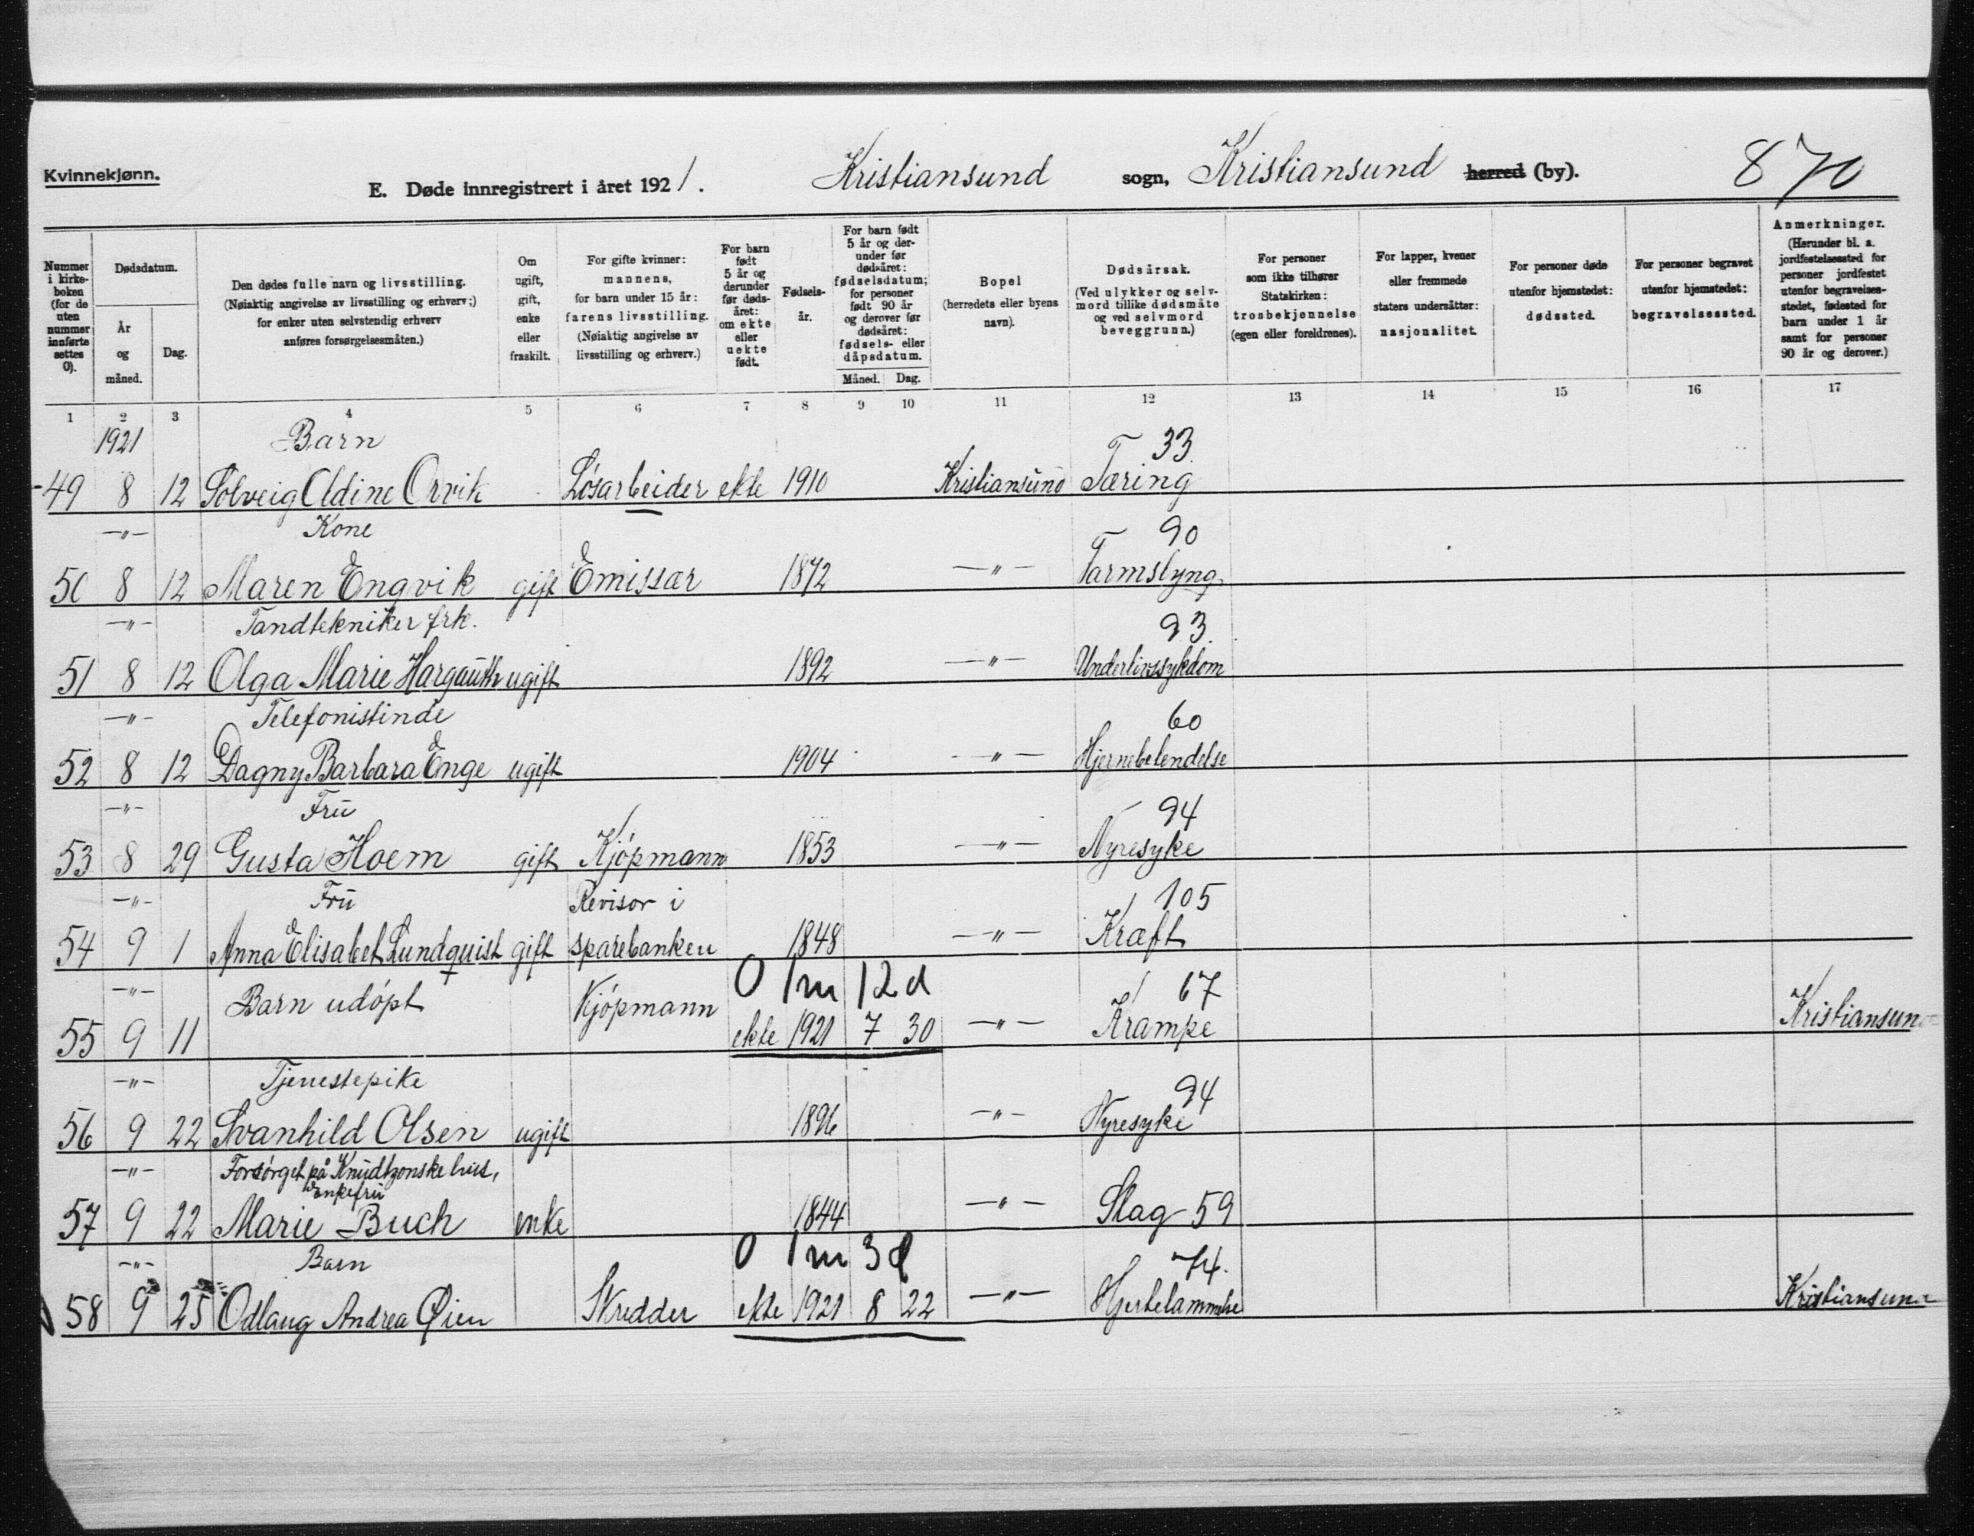 Kvinnekjønn.
E. Døde innregistrert i året 1921. Kristiansund sogn, Kristiansund herred (by). 870
Nummer i kirkeboken (for de uten nummer innførte settes 0).
Dødsdatum.
År og måned.
Dag.
Den dødes fulle navn og livsstilling.
(Nøiaktig angivelse av livsstilling og erhverv;)
for enker uten selvstendig erhverv
anføres forsørgelsesmåten.)
Om ugift, gift, enke eller fraskilt.
For gifte kvinner: mannens, for barn under 15 år: farens livsstilling. (Nøiaktig angivelse av livsstilling og erhverv.)
For barn født 5 år og derunder før dødsåret: om ekte eller uekte født.
Fødselsår.
For barn født 5 år og derunder før dødsåret: fødselsdatum; for personer født 90 år og derover før dødsåret: fødsels- eller dåpsdatum.
Måned. Dag.
Bopel (herredets eller byens navn).
Dødsårsak. (Ved ulykker og selvmord tillike dødsmåte og ved selvmord beveggrunn.)
For personer som ikke tilhører Statskirken: trosbekjennelse (egen eller foreldrenes).
For lapper, kvener eller fremmede staters undersåtter: nasjonalitet.
For personer døde utenfor hjemstedet: dødssted.
For personer begravet utenfor hjemstedet: begravelsessted.
Anmerkninger. (Herunder bl. a. jordfestelsessted for personer jordfestet utenfor begravelsesstedet, fødested for barn under 1 år samt for personer 90 år og derover.)
1 2 3 4 5 6 7 8 9 10 11 12 13 14 15 16 17
1921 Barn 33
49 8 12 Solveig Oldine Orvik Løsarbeider ekte 1910 Kristiansund Tæring
—"— Kone 90
50 8 12 Maren Engvik gift Emissær 1872 —"— Tarmslyng
—"— Tandtekniker frk. 93
51 8 12 Olga Marie Hargauth ugift 1892 —"— Underlivssykdom
—"— Telefonistinde 60
52 8 12 Dagny Barbara Enge ugift 1904 —"— Hjernebetendelse
—"— Fru 94
53 8 29 Gusta Hoem gift Kjøpmann 1853 —"— Nyresyke
—"— Fru Revisor i 105
54 9 1 Anna Elisabet Lundquist gift sparebanken 1848 —"— Kræft
—"— Barn udøpt Kjøpmann 0 1m 12d 67
55 9 11 ekte 1921 7 30 —"— Krampe Kristiansun
—"— Tjenestepike 94
56 9 22 Svanhild Olsen ugift 1896 —"— Nyresyke
—"— Forsørget på Knudtzonske hus,
enkefru
57 9 22 Marie Buch enke 1844 —"— Slag 59
—"— Barn 0 1m 3d 74.
58 9 25 Odlaug Andrea Øien Skredder ekte 1921 8 22 —"— Hjertelammelse Kristiansun